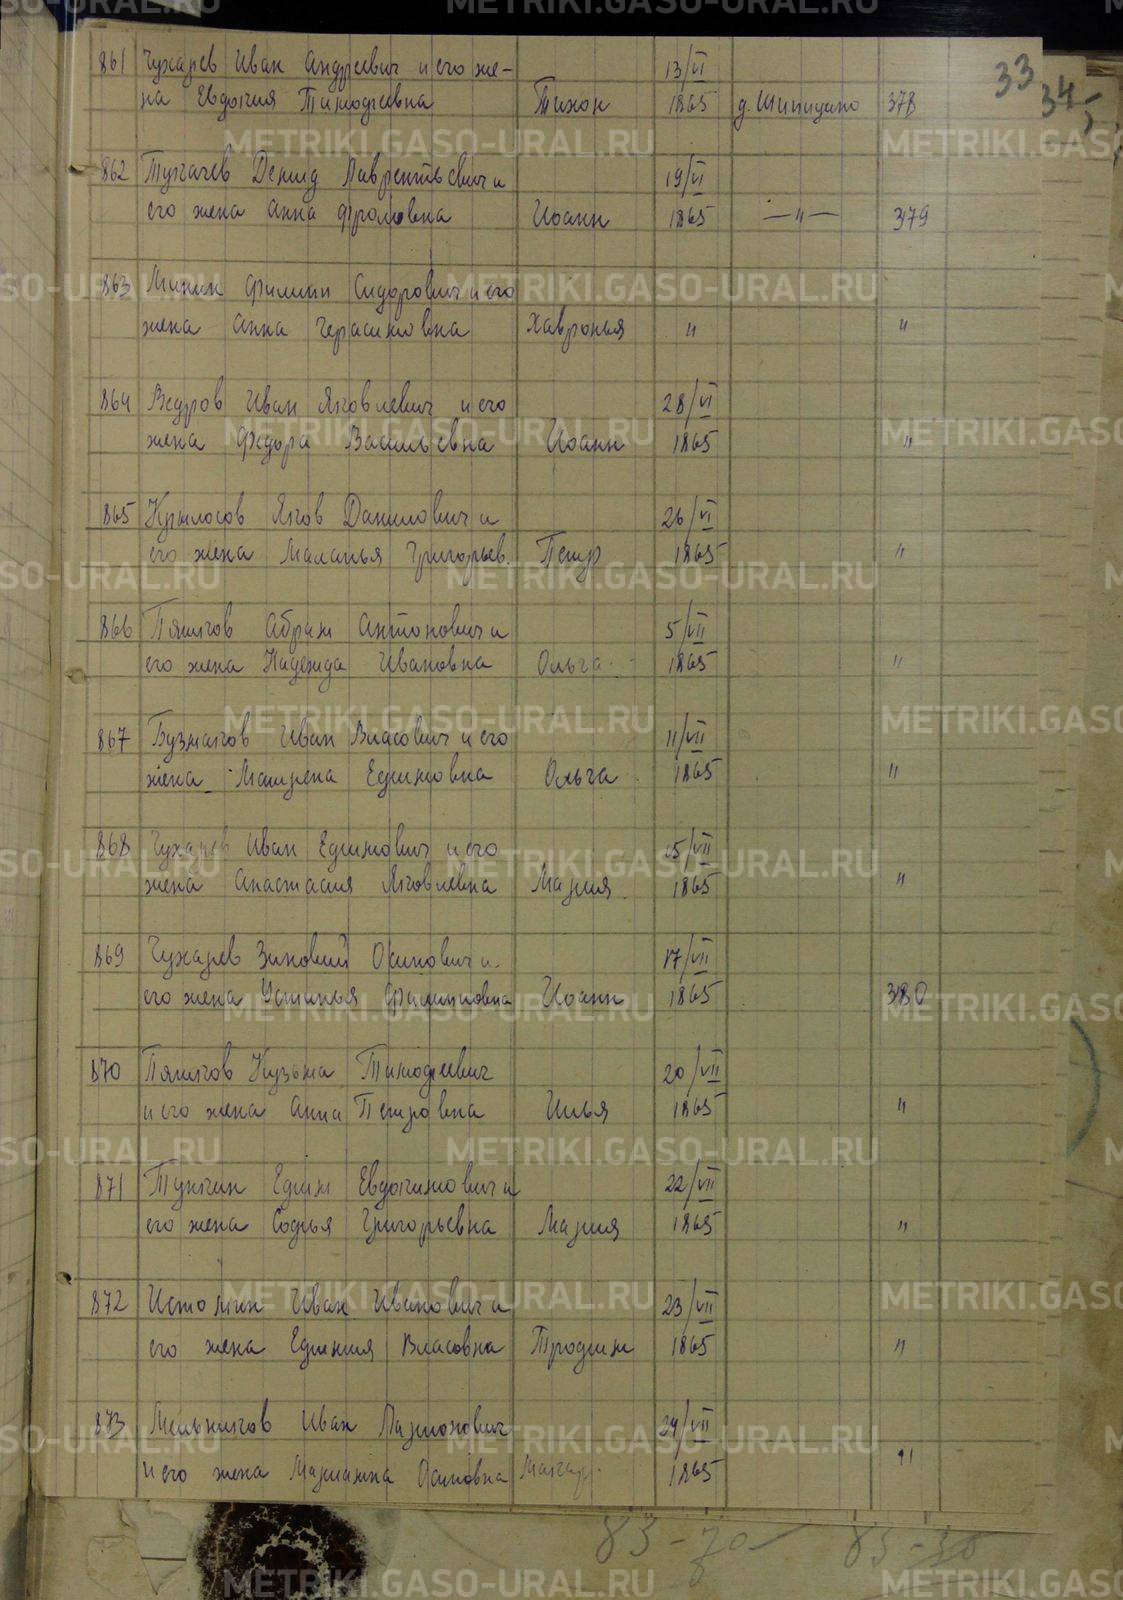 33 34
861 Чухарев Иван Андреевич и его же-
на Евдокия Тимофеевна Тихон 13/VI 1865 д. Шипицино 378
862 Тукачев Демид Лаврентьевич и 19/VI
его жена Анна Фроловна Иоанн 1865 —"— 379
863 Минин Филипп Сидорович и его
жена Анна Герасимовна Хавронья " "
864 Ведров Иван Яковлевич и его 28/VI
жена Федора Васильевна Иоанн 1865 "
865 Крылосов Яков Данилович и 26/VI
его жена Маланья Григорьев. Петр 1865 "
866 Пяшков Абрам Антонович и 5/VII
его жена Надежда Ивановна Ольга 1865 "
867 Бузмаков Иван Власович и его 11/VII
жена Матрена Ефимовна Ольга 1865 "
868 Чухарев Иван Ефимович и его 15/VII
жена Анастасия Яковлевна Мария 1865 "
869 Чухарев Зиновий Осипович и 17/VII
его жена Устинья Филипповна Иоанн 1865 380
870 Пяшков Кузьма Тимофеевич 20/VII
и его жена Анна Петровна Илья 1865 "
871 Тункин Ефим Евдокимович и 22/VII
его жена Софья Григорьевна Мария 1865 "
872 Истомин Иван Иванович и 23/VII
его жена Ефимия Власовна Трофим 1865 "
873 Мельников Иван Ларионович 24/VII
и его жена Марианна Осиповна Макар. 1865 "
83-70 83-30
METRIKI.GASO-URAL.RU